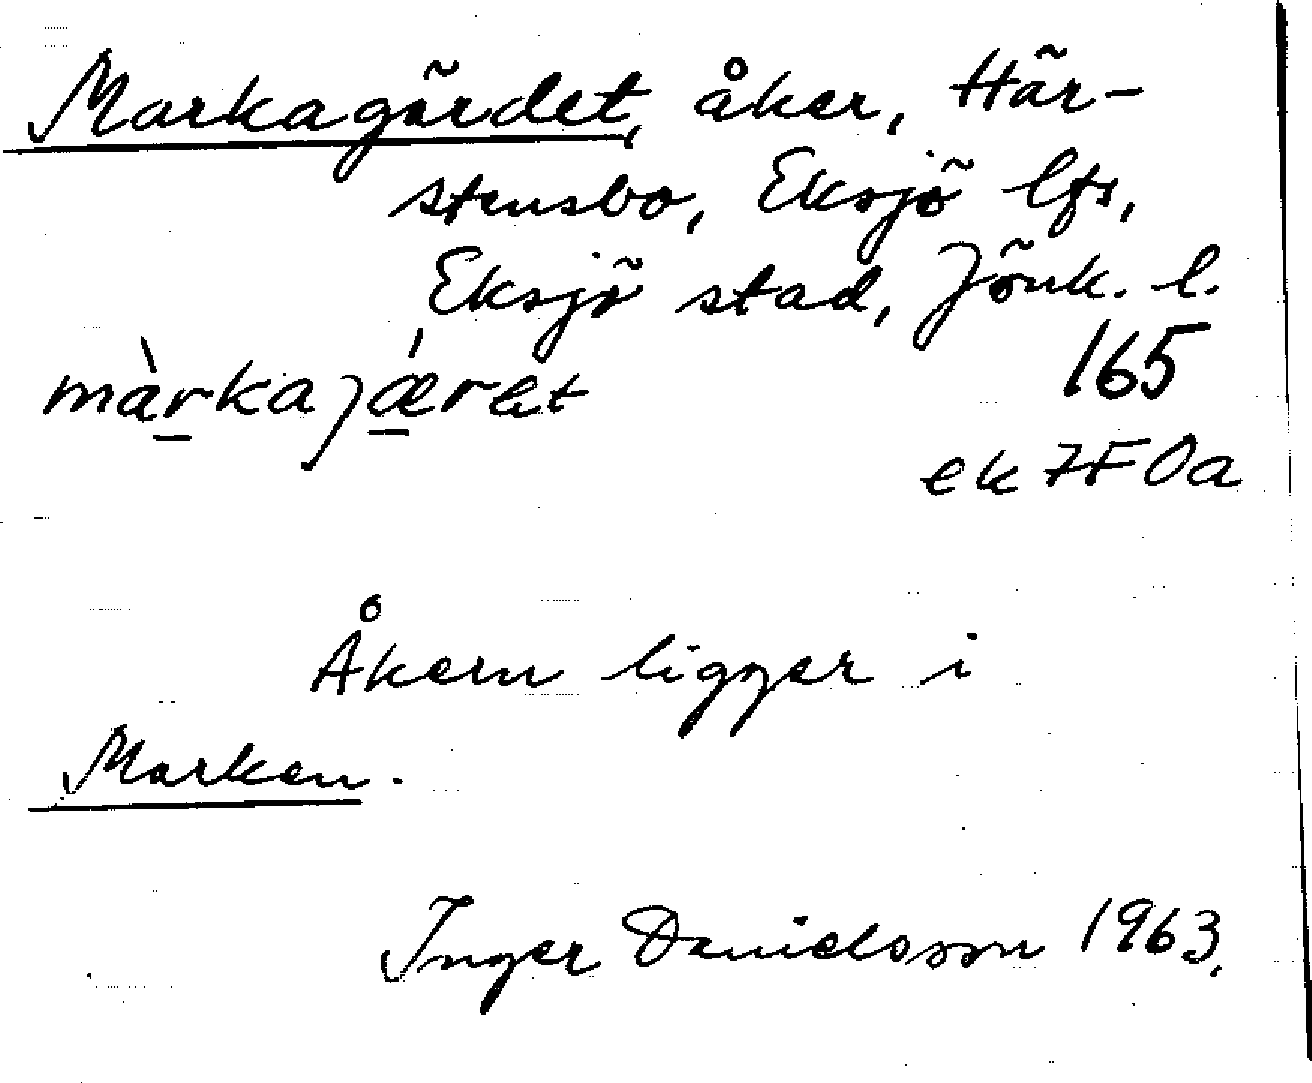 Markagärdet, åker, Här-
stensbo, Eksjö lfs,
Eksjö stad, Jönk. l.
màrkajǽret 165
ek 7F0a
Åkern ligger i
Marken.
Inger Danielsson 1963.